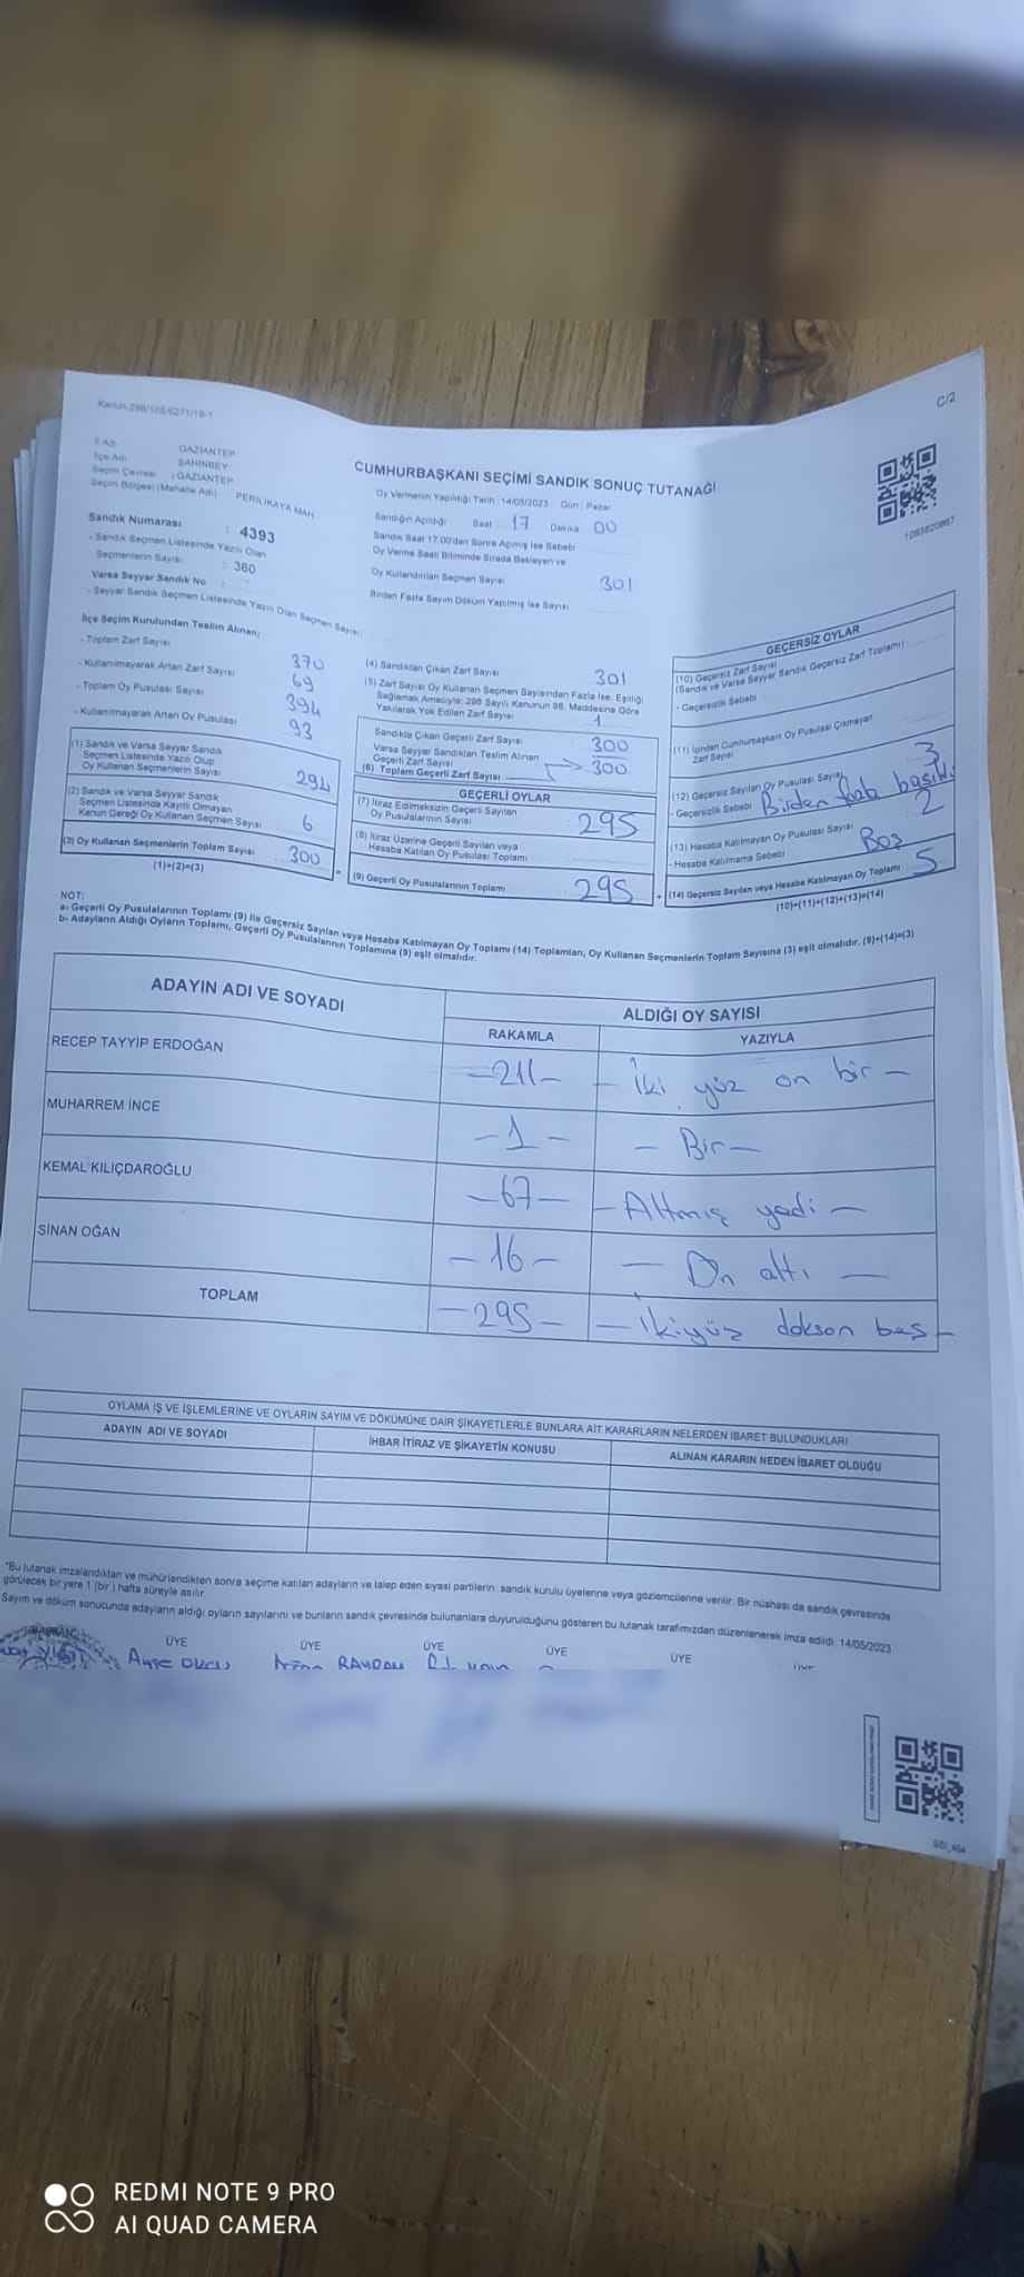 Kanun:298/
C/2
İl Adı GAZİANTEP
İlçe Adı ŞAHİNBEY
Seçim Çevresi : GAZİANTEP
Seçim Bölgesi (Mahalle Adı) PERİLİKAYA MAH.
Sandık Numarası : 4393
- Sandık Seçmen Listesinde Yazılı Olan
Seçmenlerin Sayısı : 360
Varsa Seyyar Sandık No :
- Seyyar Sandık Seçmen Listesinde Yazılı Olan Seçmen Sayısı
CUMHURBAŞKANI SEÇİMİ SANDIK SONUÇ TUTANAĞI
Oy Vermenin Yapıldığı Tarih : 14/05/2023 Gün : Pazar
Sandığın Açıldığı Saat 17 Dakika 00
Sandık Saat 17.00'den Sonra Açılmış İse Sebebi
Oy Verme Saati Bitiminde Sırada Bekleyen ve
Oy Kullandırılan Seçmen Sayısı 301
Birden Fazla Sayım Döküm Yapılmış İse Sayısı
İlçe Seçim Kurulundan Teslim Alınan;
- Toplam Zarf Sayısı 370
- Kullanılmayarak Artan Zarf Sayısı 69
- Toplam Oy Pusulası Sayısı 394
- Kullanılmayarak Artan Oy Pusulası 93
(1) Sandık ve Varsa Seyyar Sandık
Seçmen Listesinde Yazılı Olup
Oy Kullanan Seçmenlerin Sayısı 294
(2) Sandık ve Varsa Seyyar Sandık
Seçmen Listesinde Kayıtlı Olmayan
Kanun Gereği Oy Kullanan Seçmen Sayısı 6
(3) Oy Kullanan Seçmenlerin Toplam Sayısı 300
(1)+(2)=(3)
(4) Sandıktan Çıkan Zarf Sayısı 301
(5) Zarf Sayısı Oy Kullanan Seçmen Sayısından Fazla İse, Eşitliği
Sağlamak Amacıyla; 298 Sayılı Kanunun 98. Maddesine Göre
Yakılarak Yok Edilen Zarf Sayısı 1
Sandıkta Çıkan Geçerli Zarf Sayısı 300
Varsa Seyyar Sandıktan Teslim Alınan
Geçerli Zarf Sayısı
(6) Toplam Geçerli Zarf Sayısı 300
GEÇERLİ OYLAR
(7) İtiraz Edilmeksizin Geçerli Sayılan
Oy Pusulalarının Sayısı 295
(8) İtiraz Üzerine Geçerli Sayılan veya
Hesaba Katılan Oy Pusulası Toplamı
(9) Geçerli Oy Pusulalarının Toplamı 295
GEÇERSİZ OYLAR
(10) Geçersiz Zarf Sayısı
(Sandık ve Varsa Seyyar Sandık Geçersiz Zarf Toplamı)
- Geçersizlik Sebebi
(11) İçinden Cumhurbaşkanı Oy Pusulası Çıkmayan
Zarf Sayısı
(12) Geçersiz Sayılan Oy Pusulası Sayısı 3
- Geçersizlik Sebebi Birden fazla basılı.
(13) Hesaba Katılmayan Oy Pusulası Sayısı 2
- Hesaba Katılmama Sebebi Boş
(14) Geçersiz Sayılan veya Hesaba Katılmayan Oy Toplamı 5
(10)+(11)+(12)+(13)=(14)
NOT:
a- Geçerli Oy Pusulalarının Toplamı (9) ile Geçersiz Sayılan veya Hesaba Katılmayan Oy Toplamı (14) Toplamları, Oy Kullanan Seçmenlerin Toplam Sayısına (3) eşit olmalıdır. (9)+(14)=(3)
b- Adayların Aldığı Oyların Toplamı, Geçerli Oy Pusulalarının Toplamına (9) eşit olmalıdır.
ADAYIN ADI VE SOYADI
ALDIĞI OY SAYISI
RAKAMLA YAZIYLA
RECEP TAYYİP ERDOĞAN -211- - İki yüz on bir -
MUHARREM İNCE -1- - Bir -
KEMAL KILIÇDAROĞLU -67- - Altmış yedi -
SİNAN OĞAN -16- - On altı -
TOPLAM -295- - İkiyüz dokson beş -
OYLAMA İŞ VE İŞLEMLERİNE VE OYLARIN SAYIM VE DÖKÜMÜNE DAİR ŞİKAYETLERLE BUNLARA AİT KARARLARIN NELERDEN İBARET BULUNDUKLARI
ADAYIN ADI VE SOYADI İHBAR İTİRAZ VE ŞİKAYETİN KONUSU ALINAN KARARIN NEDEN İBARET OLDUĞU
*Bu tutanak imzalandıktan ve mühürlendikten sonra seçime katılan adayların ve talep eden siyasi partilerin sandık kurulu üyelerine veya gözlemcilerine verilir. Bir nüshası da sandık çevresinde
görülecek bir yere 1 (bir) hafta süreyle asılır.
Sayım ve döküm sonucunda adayların aldığı oyların sayılarını ve bunların sandık çevresinde bulunanlara duyurulduğunu gösteren bu tutanak tarafımızdan düzenlenerek imza edildi. 14/05/2023
ÜYE ÜYE ÜYE ÜYE ÜYE ÜYE
REDMI NOTE 9 PRO
AI QUAD CAMERA